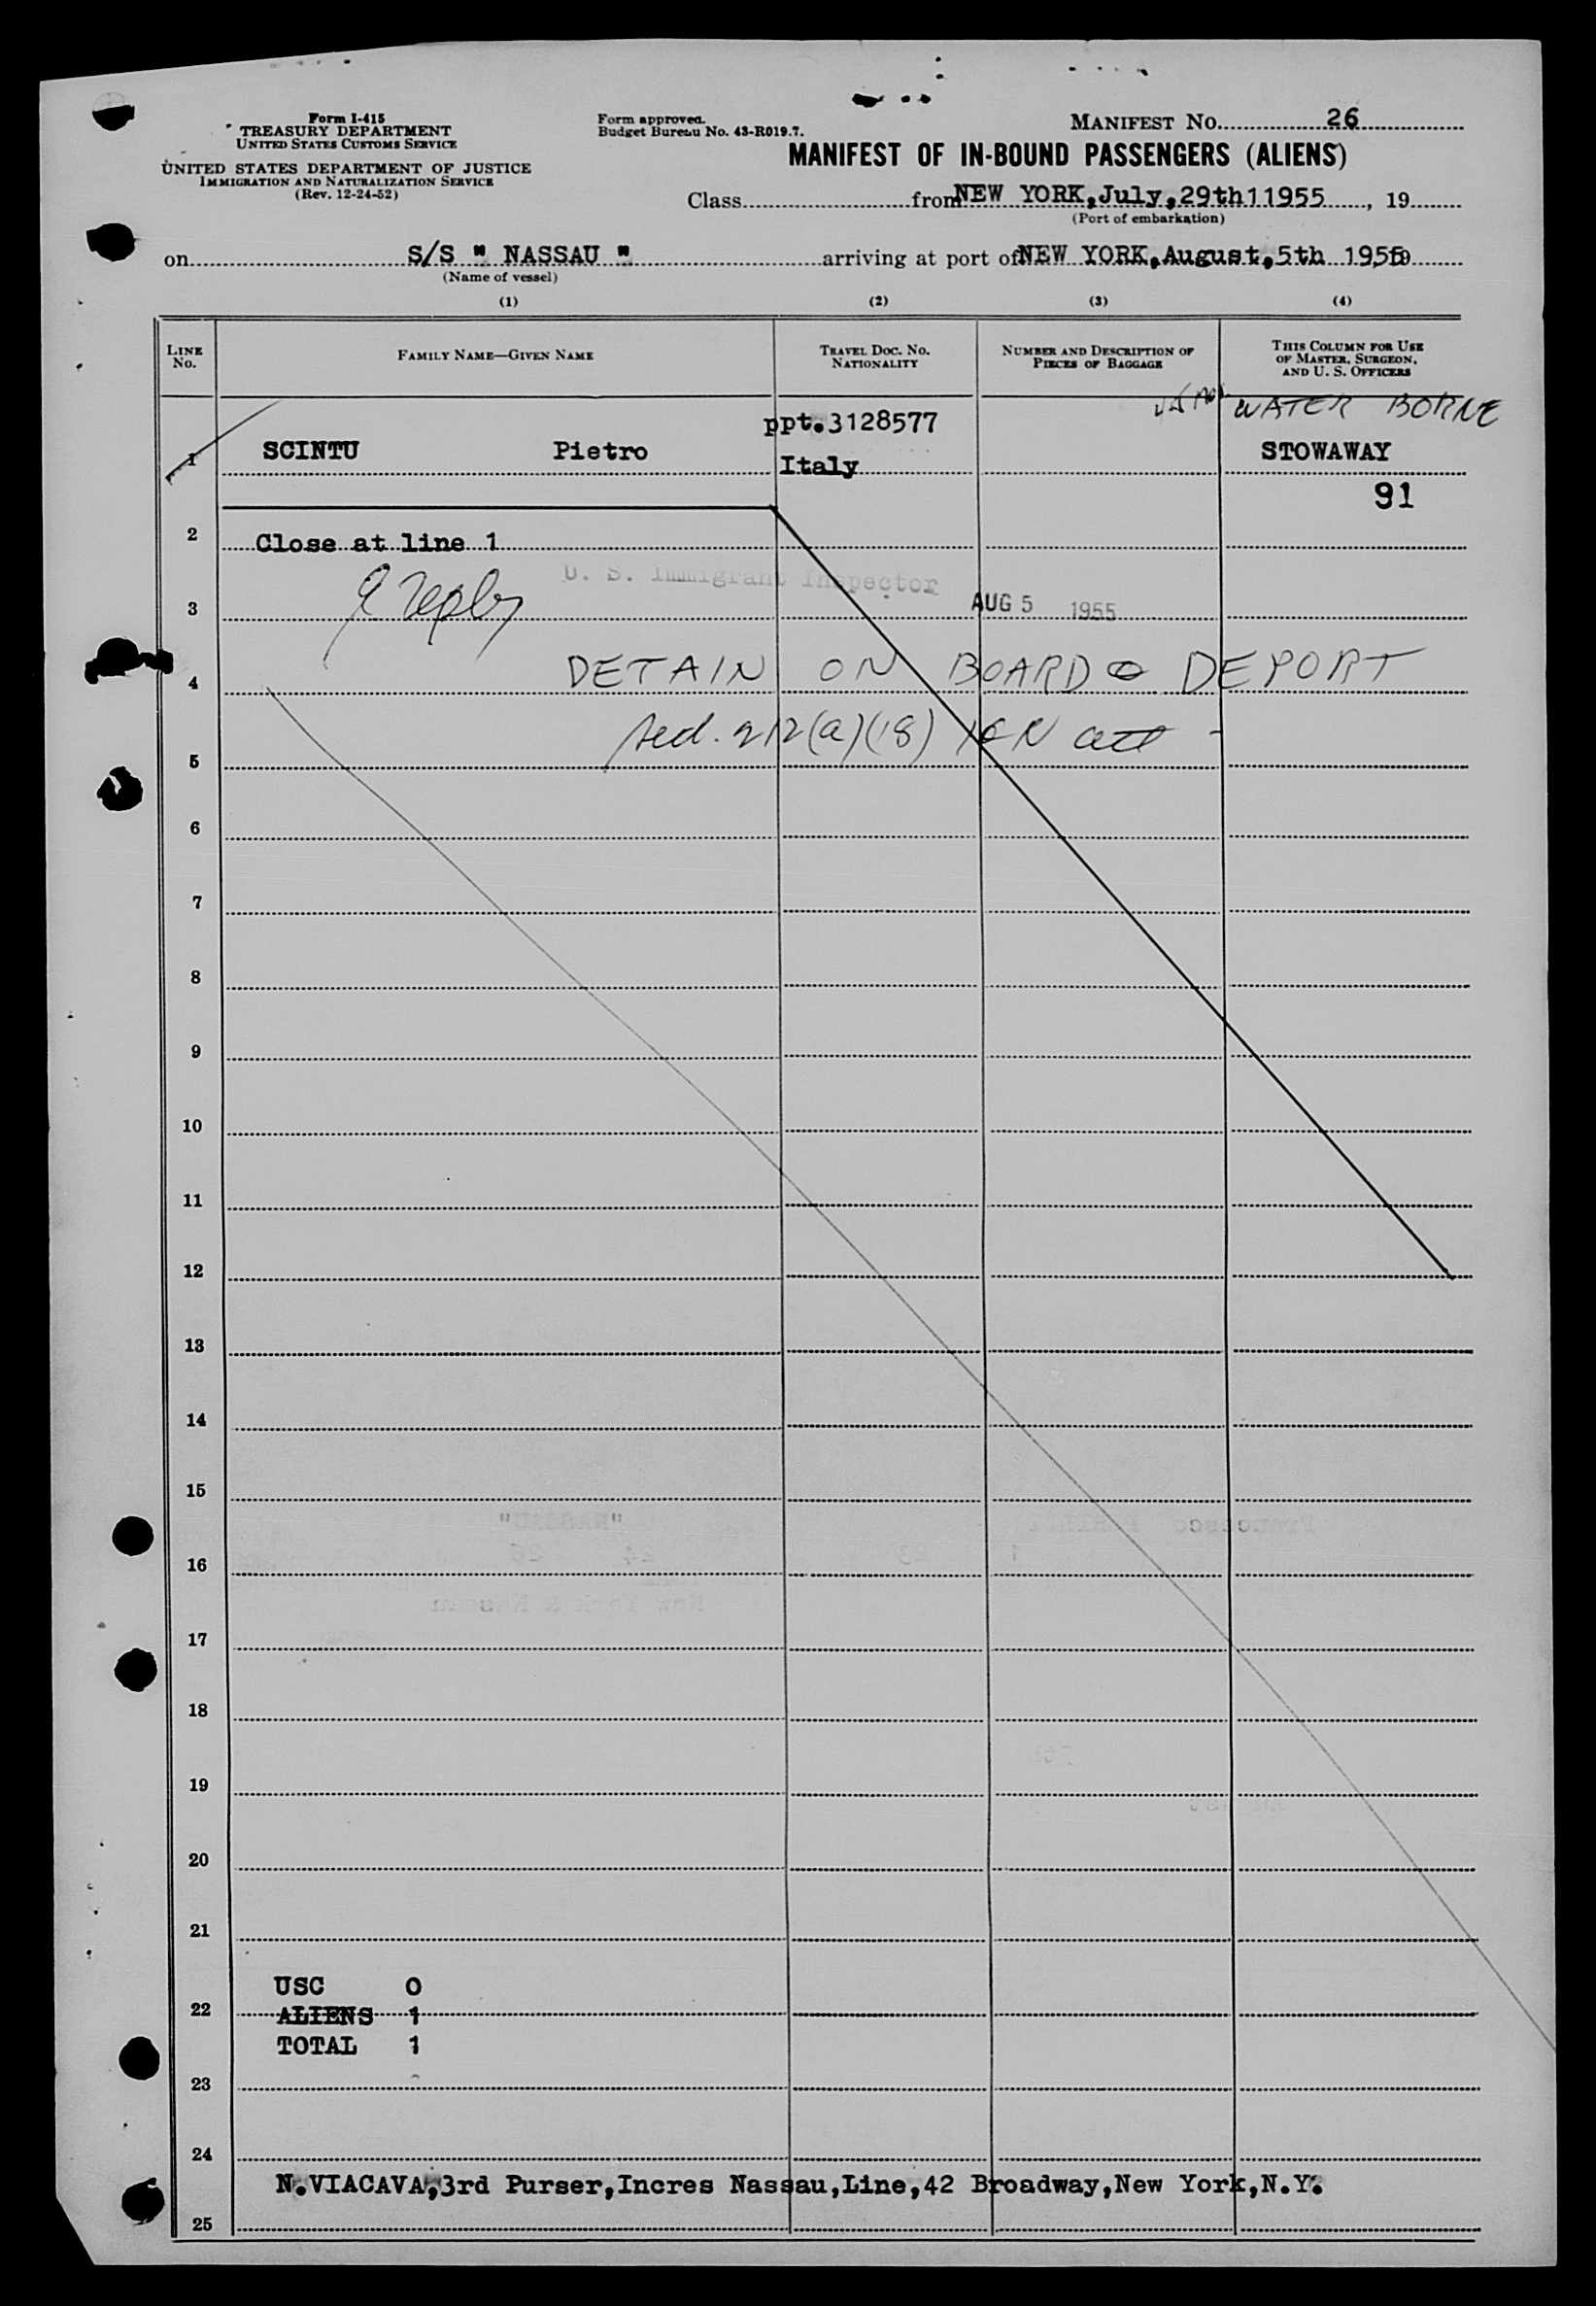 Form I-415
TREASURY DEPARTMENT
UNITED STATES CUSTOMS SERVICE
UNITED STATES DEPARTMENT OF JUSTICE
IMMIGRATION AND NATURALIZATION SERVICE
(Rev. 12-24-52)
Form approved.
Budget Bureau No. 43-R019.7.
MANIFEST NO. 26
MANIFEST OF IN-BOUND PASSENGERS (ALIENS)
Class from NEW YORK, July, 29th 1955, 19
(Port of embarkation)
on S/S " NASSAU " arriving at port of NEW YORK, August, 5th 1955
(Name of vessel)
(1) (2) (3) (4)
LINE NO.
FAMILY NAME—GIVEN NAME
TRAVEL DOC. NO. NATIONALITY
NUMBER AND DESCRIPTION OF PIECES OF BAGGAGE
THIS COLUMN FOR USE OF MASTER, SURGEON, AND U. S. OFFICERS
WATER BORNE
ppt. 3128577
1 SCINTU Pietro Italy STOWAWAY
91
2 Close at line 1
U. S. Immigrant Inspector
3 AUG 5 1955
4 DETAIN ON BOARD DEPORT
5 Sec. 212(a)(18) I&N act
6
7
8
9
10
11
12
13
14
15
16
17
18
19
20
21
USC 0
22 ALIENS 1
TOTAL 1
23
24
N. VIACAVA, 3rd Purser, Incres Nassau, Line, 42 Broadway, New York, N.Y.
25